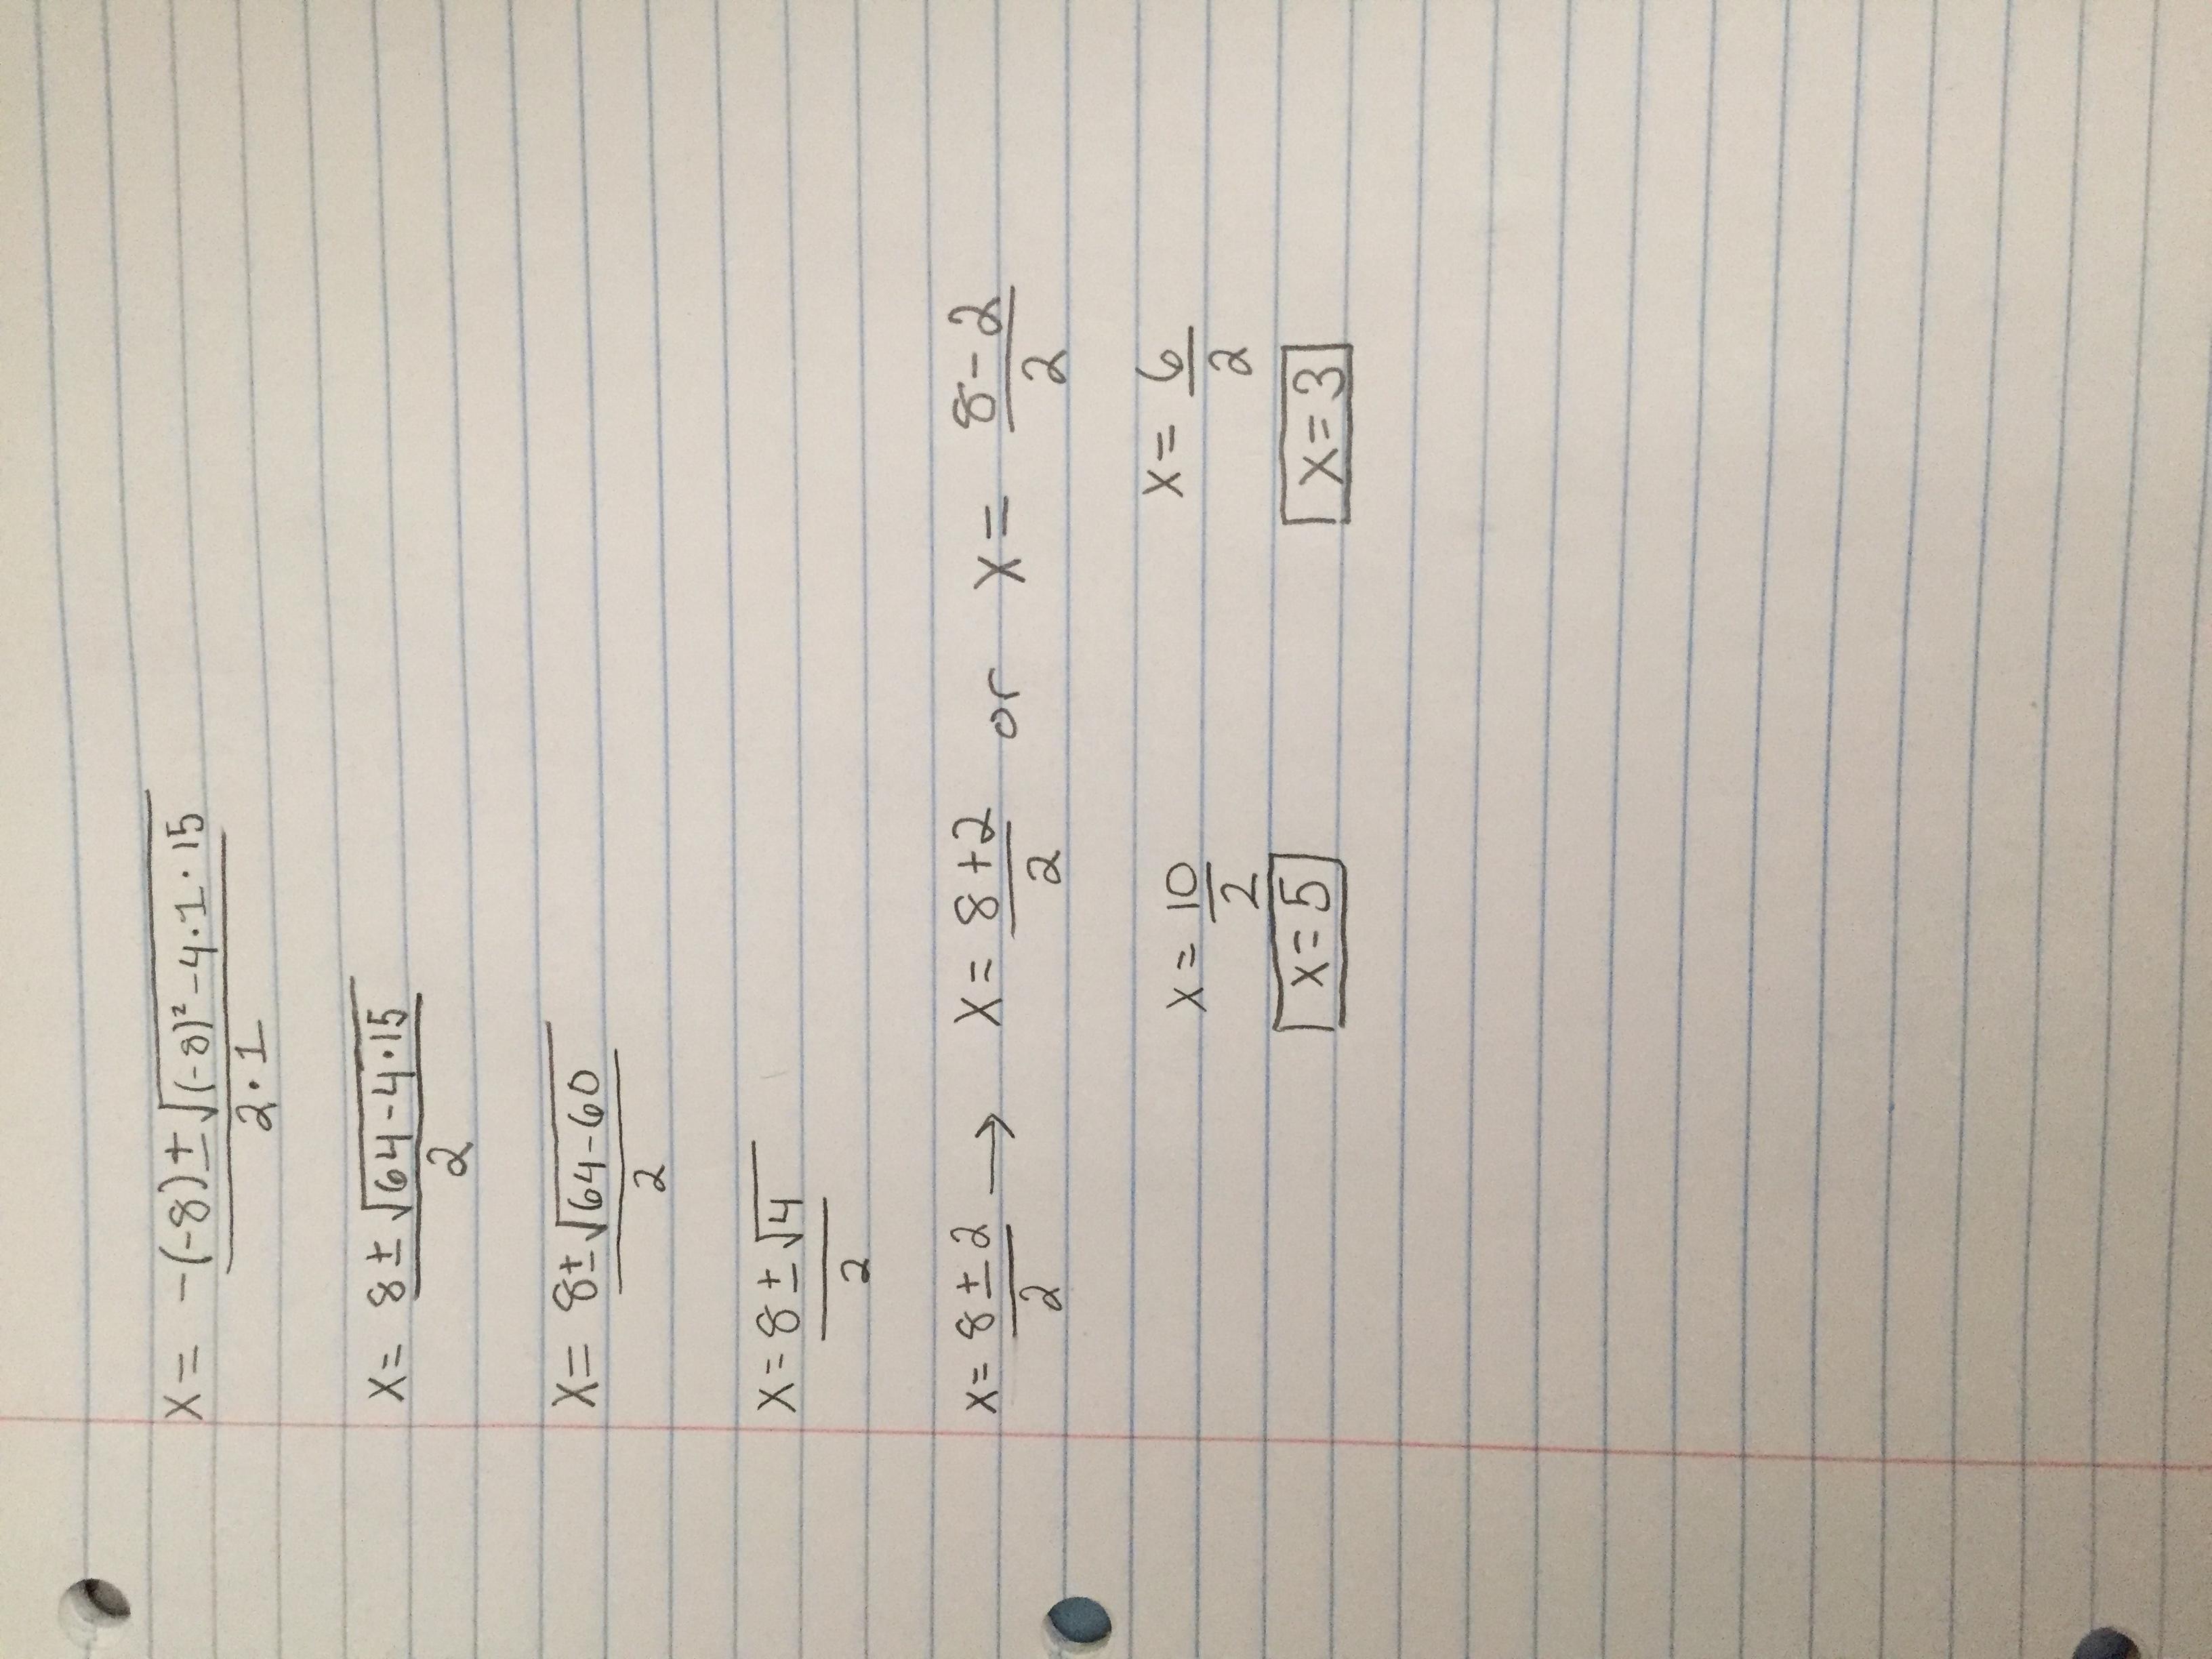 x = -(-8) ± √((-8)² - 4·1·15) / 2·1
x = 8 ± √(64-4·15) / 2
x = 8 ± √(64-60) / 2
x = 8 ± √4 / 2
x = 8 ± 2 / 2 → x = 8+2 / 2 or x = 8-2 / 2
x = 10 / 2 x = 6 / 2
x = 5 x = 3